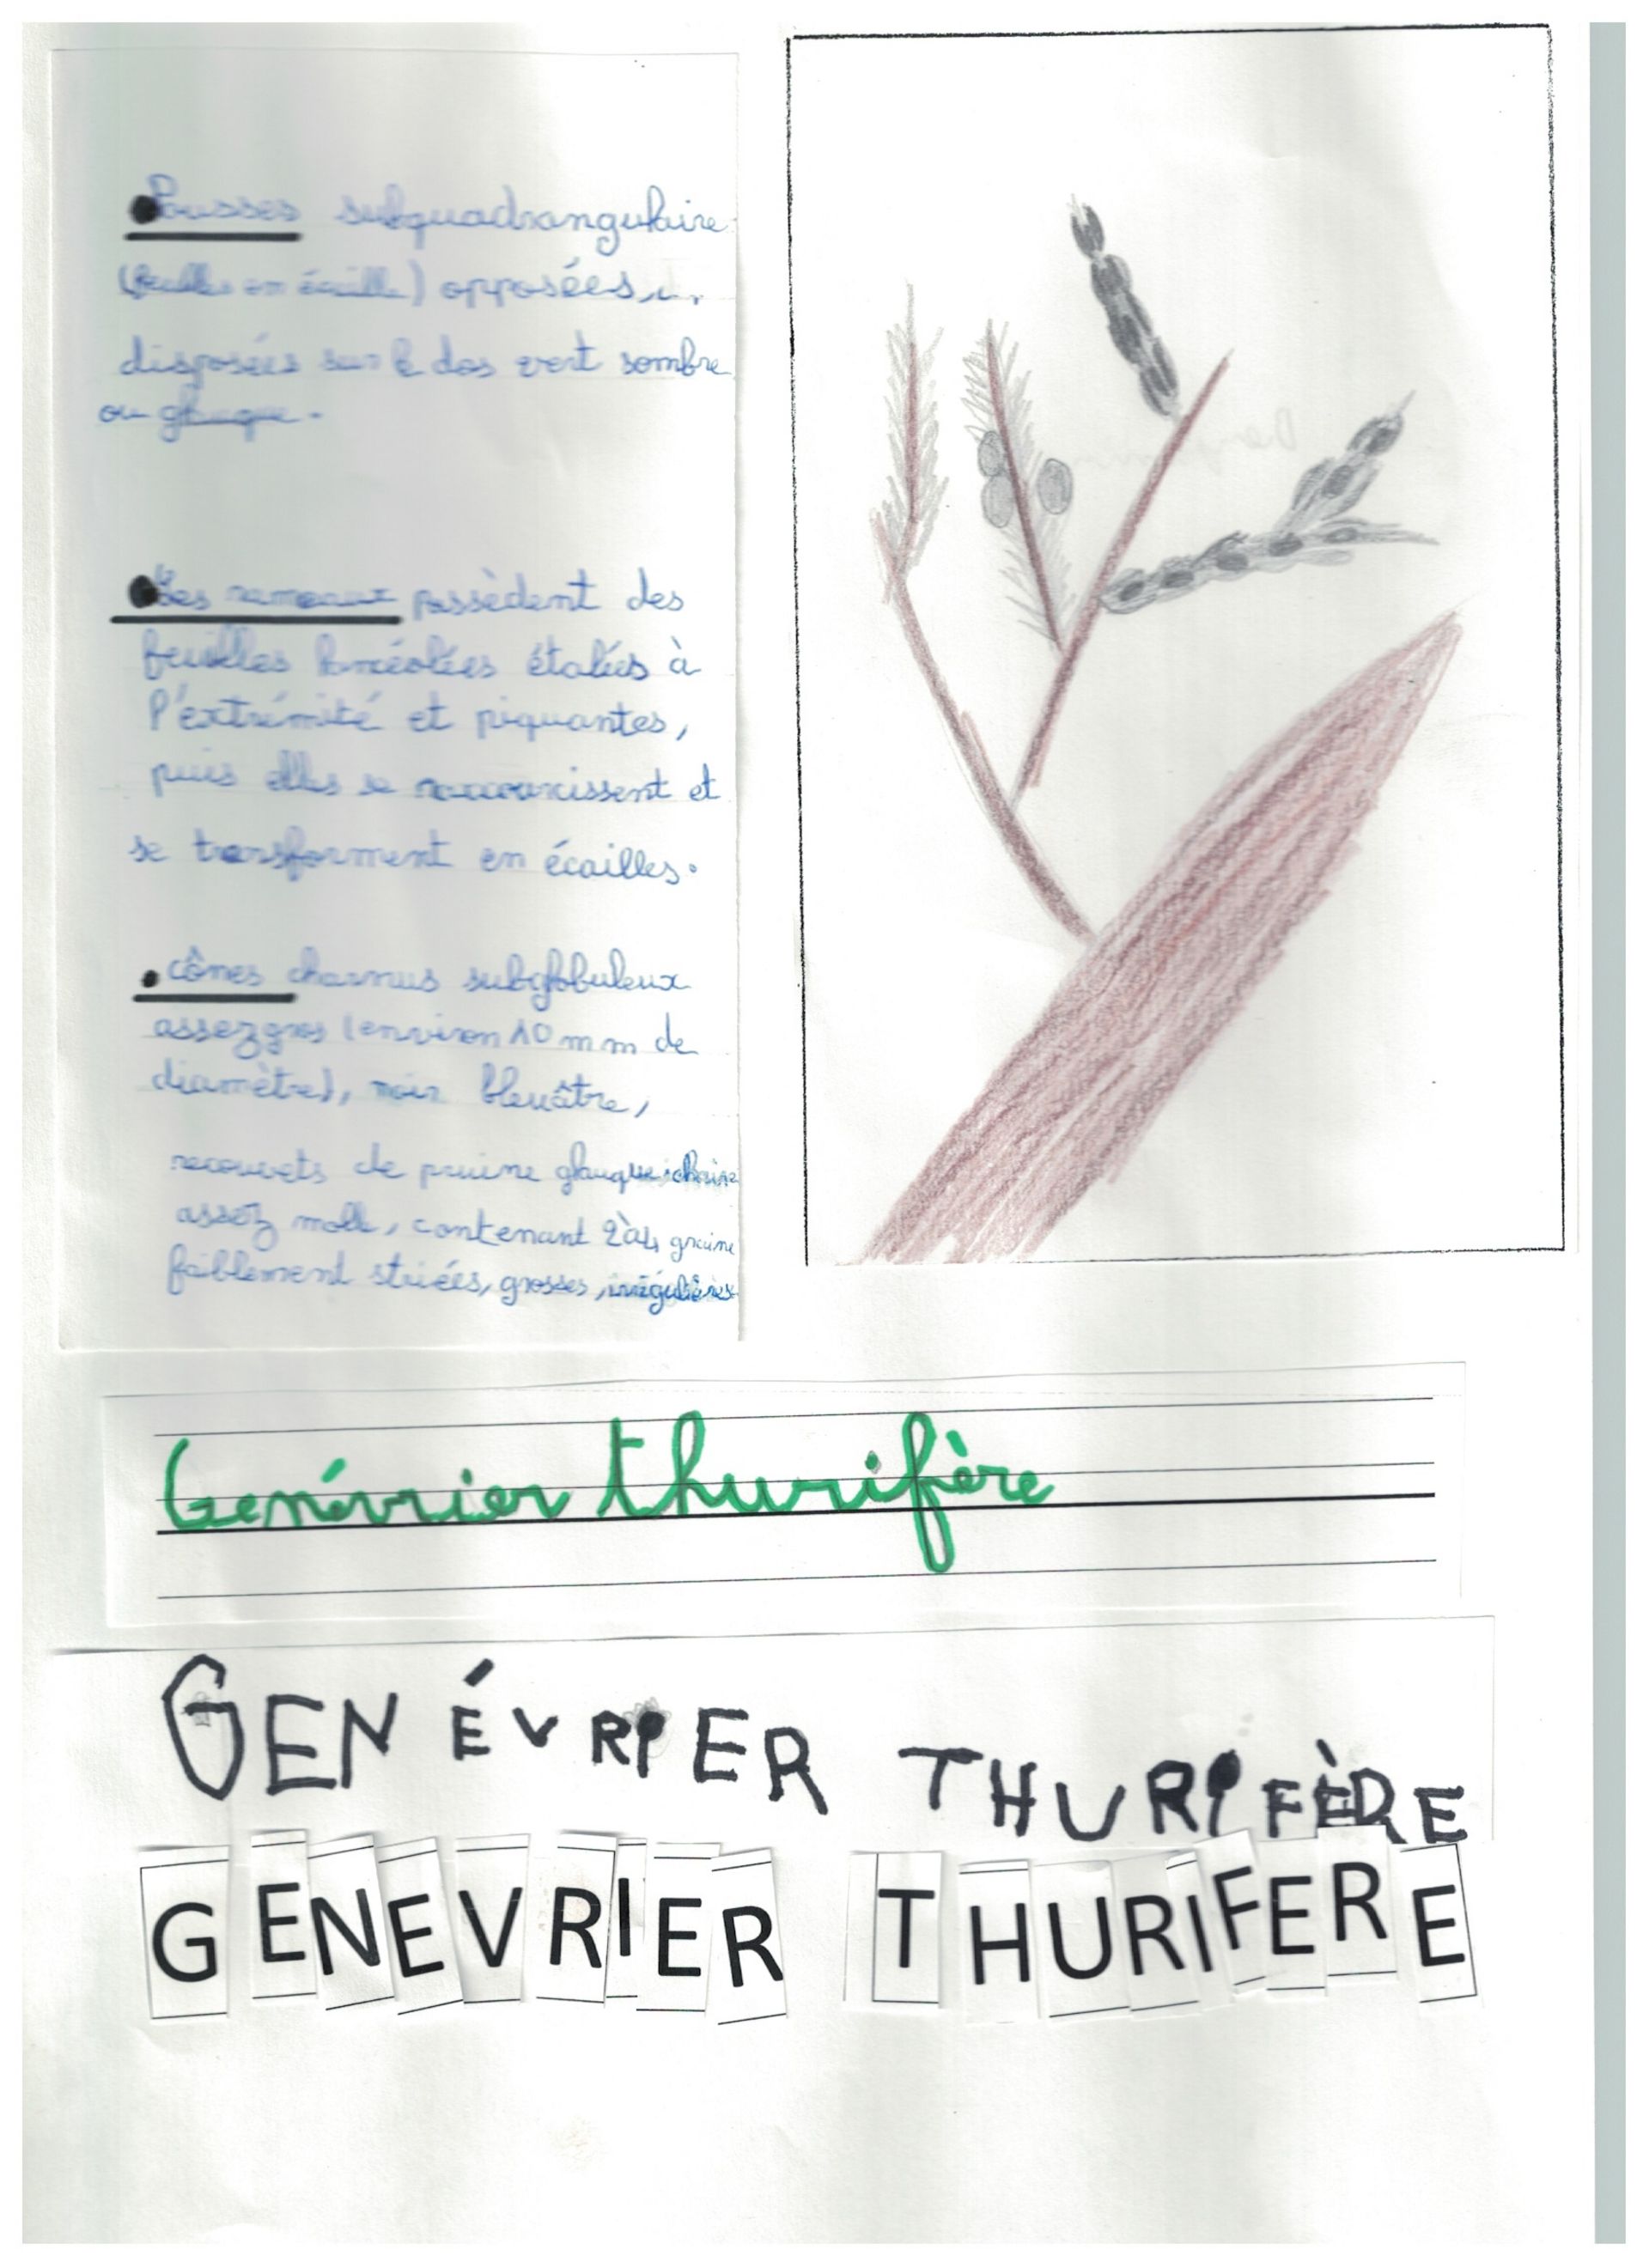 Pousses subquadrangulaire
(feuilles en écaille) opposées,
disposées sur le dos vert sombre
ou glauque.
Les rameaux possèdent des
feuilles lancéolées étalées à
l'extrémité et piquantes,
puis elles se raccourcissent et
se transforment en écailles.
cônes charnus subglobuleux
assez gros (environ 10 mm de
diamètre), noir bleuâtre,
recouvets de pruine glauque
assez molle, contenant 2 à 4 graine
faiblement striées, grosses, irrégulières
Genévrier thurifère
GENÉVRIER THURIFÈRE
GENEVRIER THURIFERE